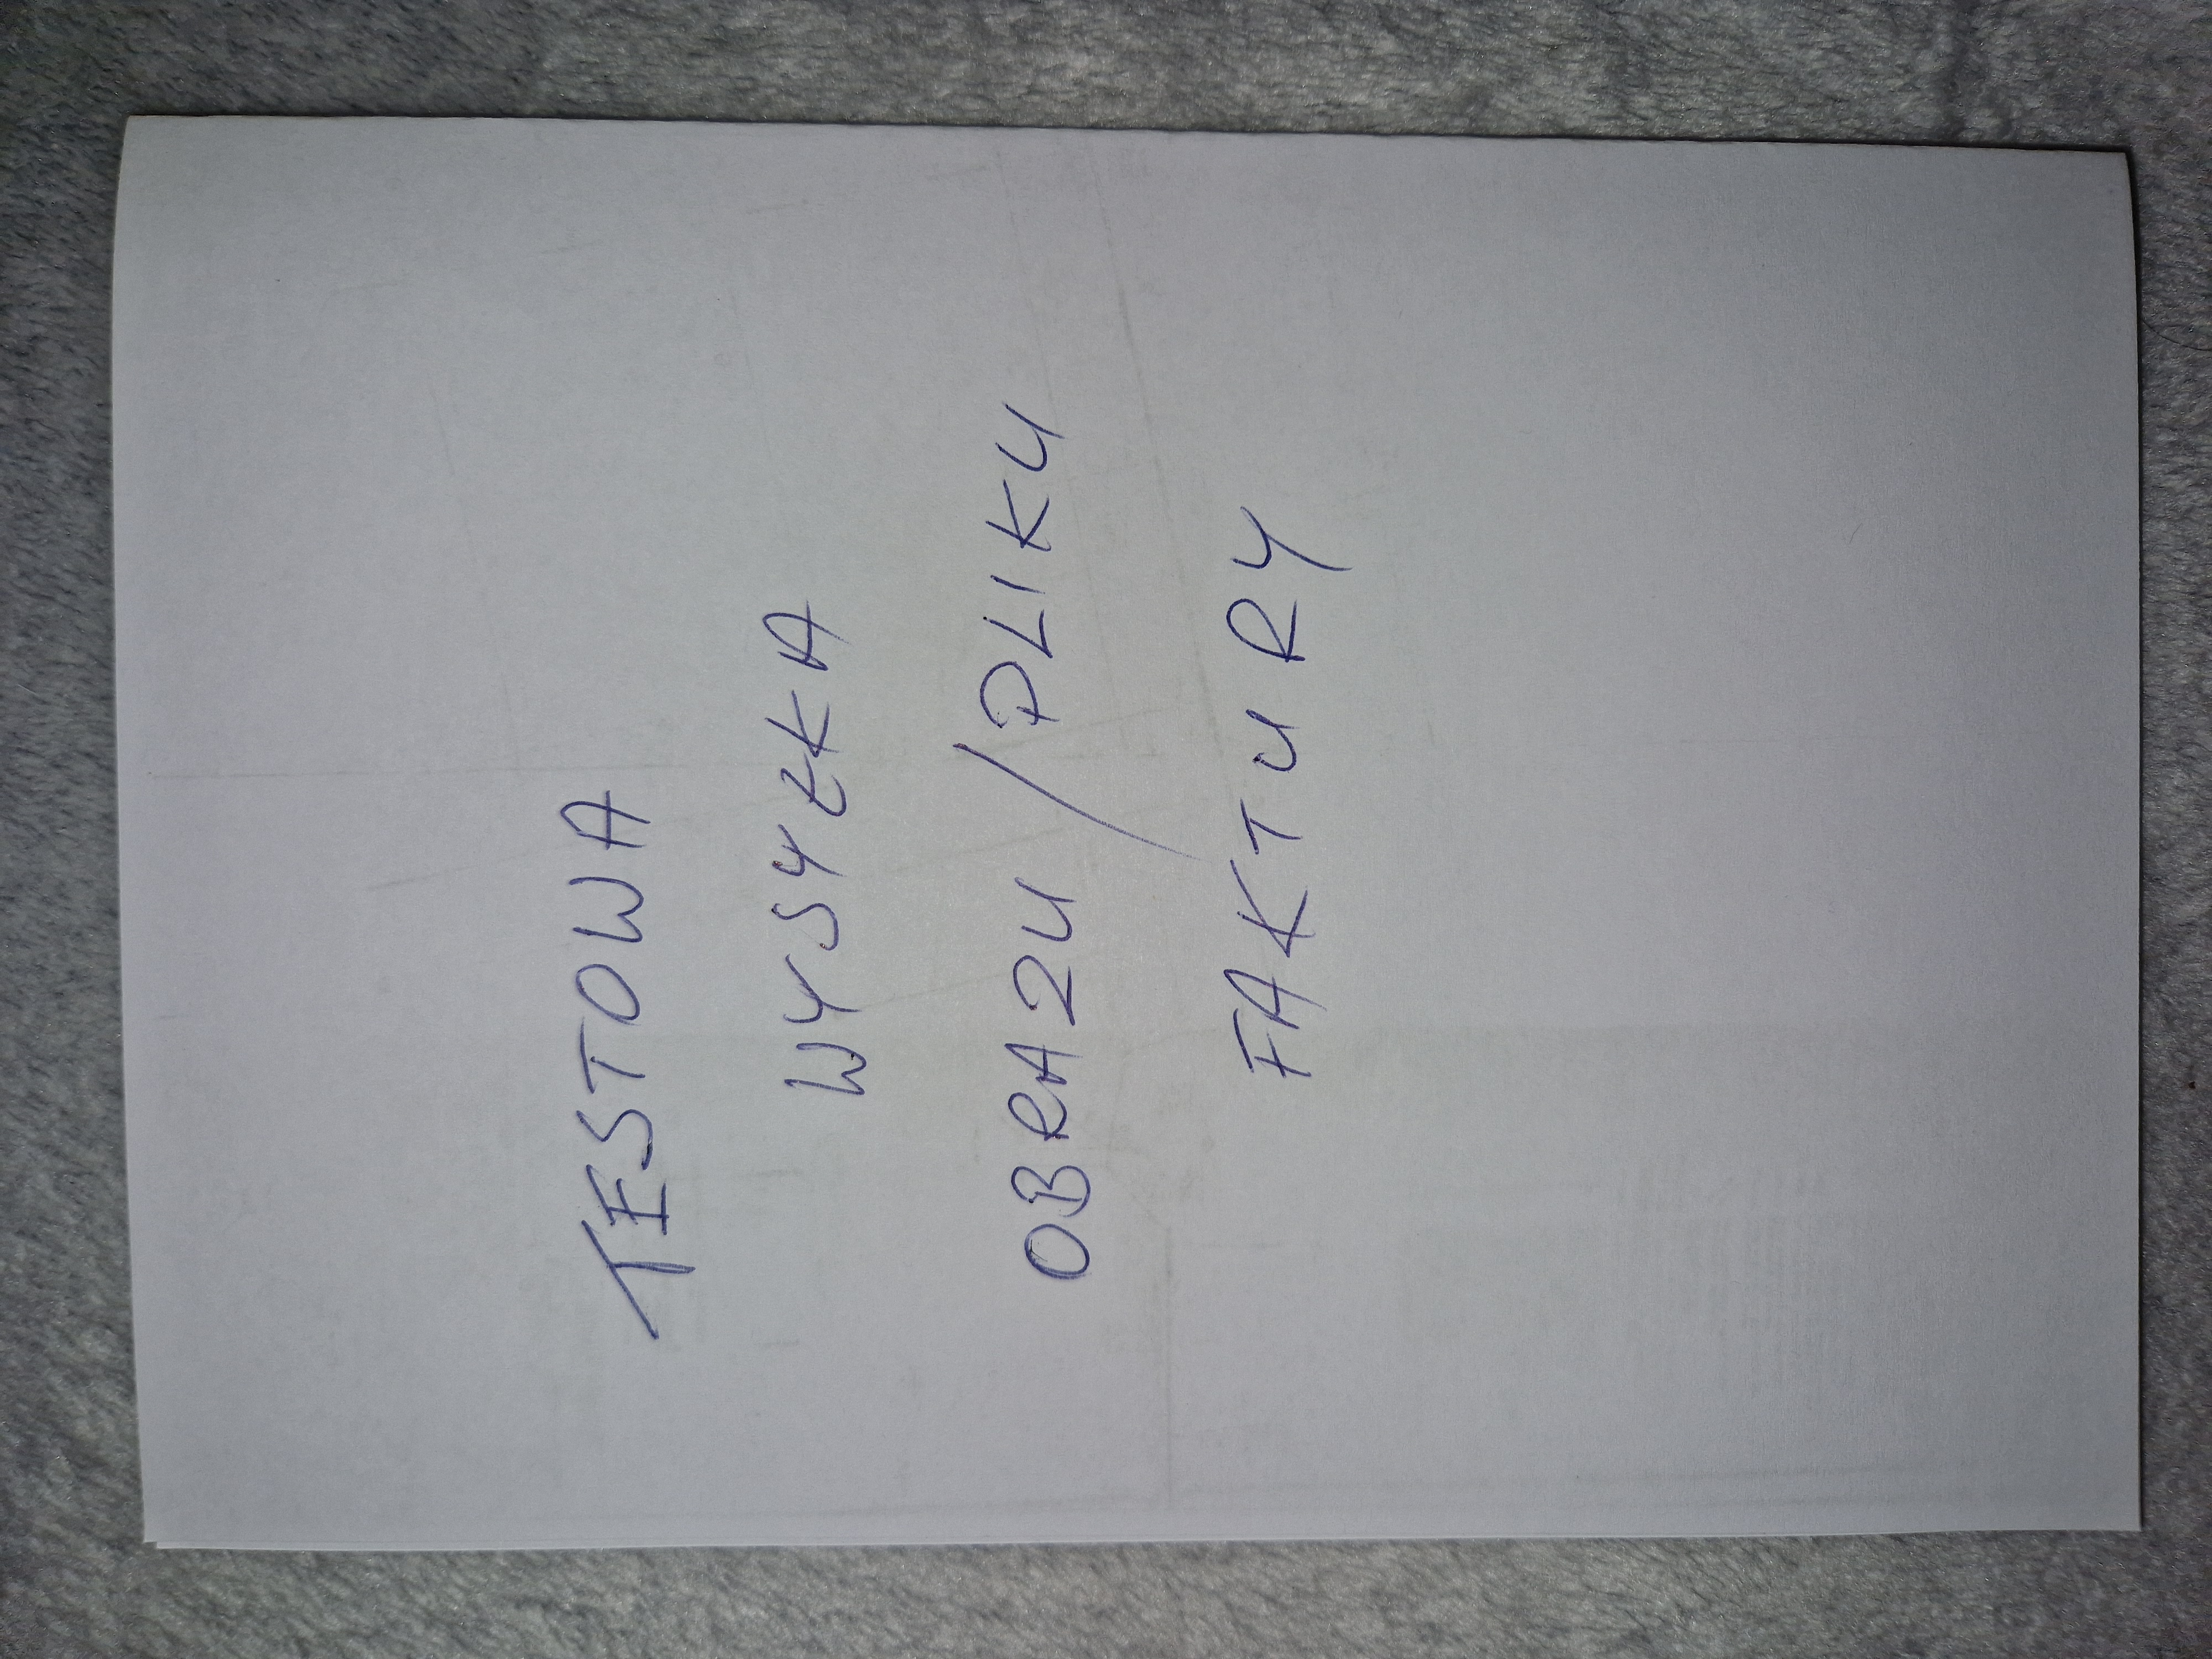 TESTOWA
WYSYŁKA
OBRAZU / PLIKU
FAKTURY